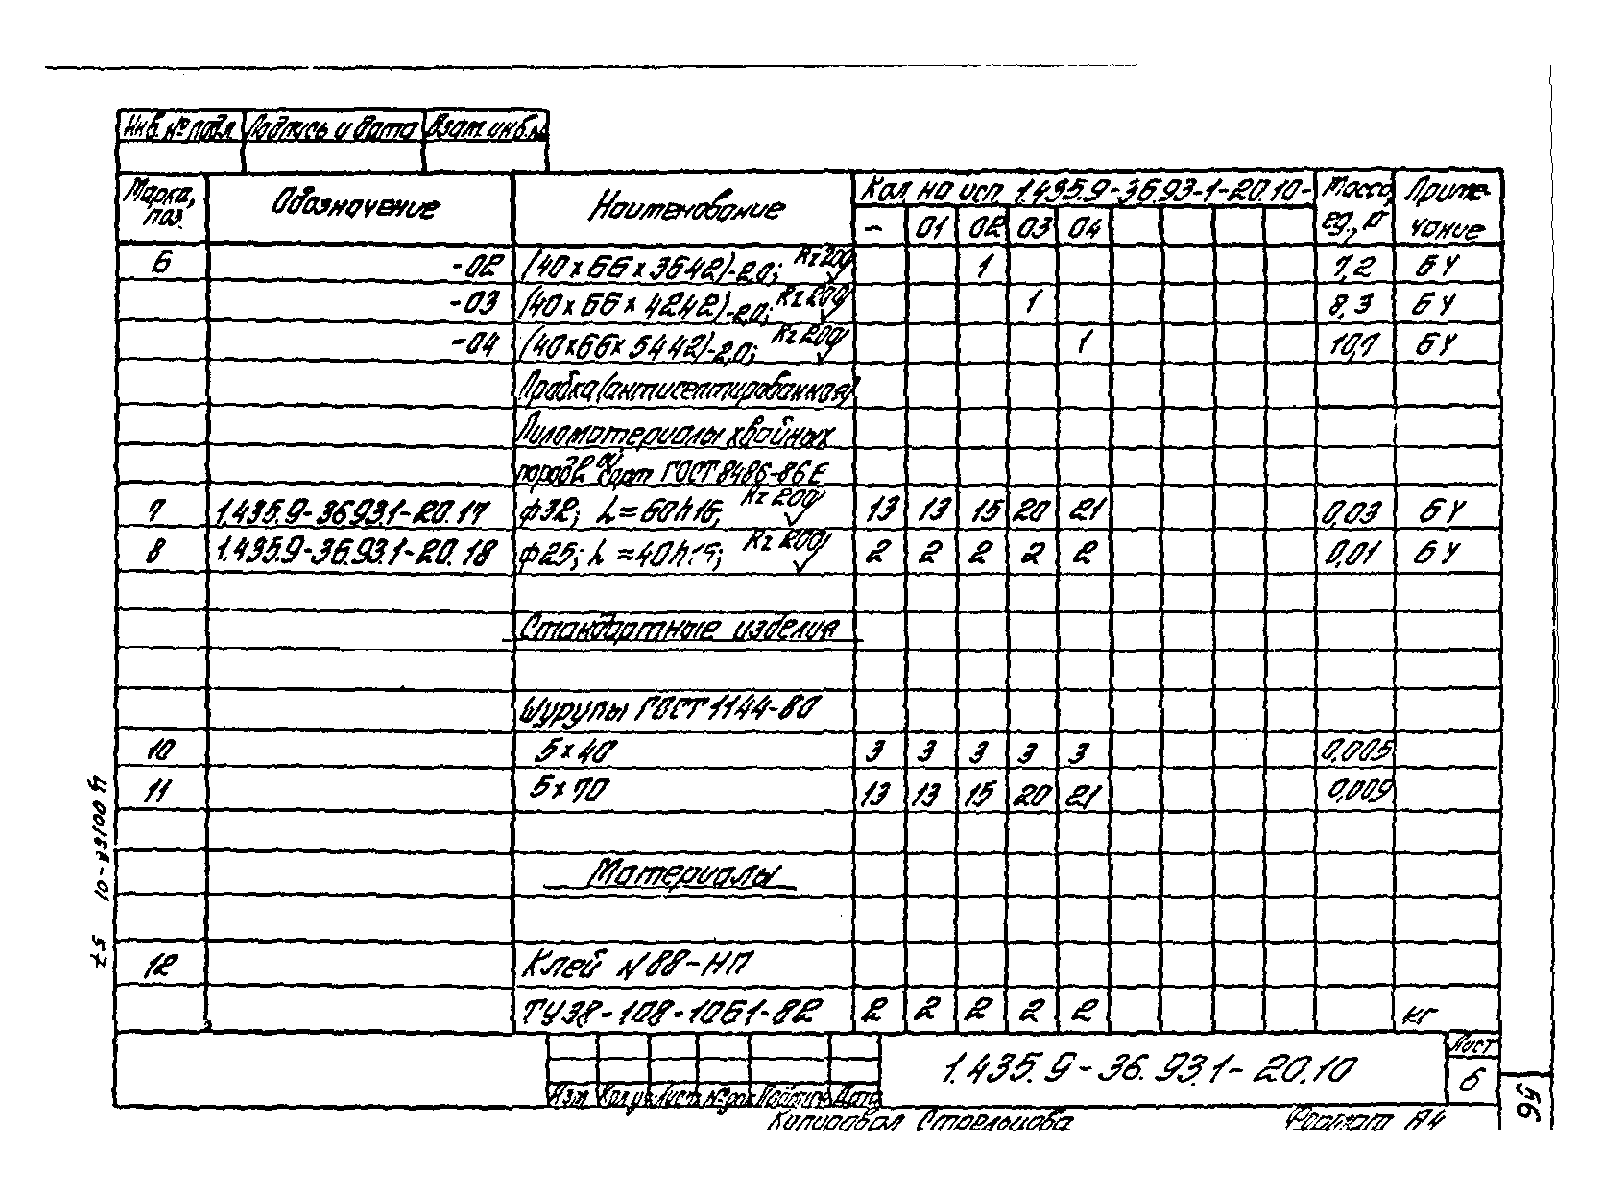 Инв. № подл. Подпись и дата Взам. инв. №
Марка, поз. Обозначение Наименование Кол. на исп. 1.435.9-36.93.1-20.10- Масса, ед., кг Приме-чание
- 01 02 03 04
6 -02 (40×66×3642)-2,0; Rz200 1 7,2 БЧ
-03 (40×66×4242)-2,0; Rz200 1 8,3 БЧ
-04 (40×66×5442)-2,0; Rz200 1 10,7 БЧ
Пробка (антисептированная)
Пиломатериалы хвойных
пород 2 сорт ГОСТ 8486-86Е
7 1.435.9-36.93.1-20.17 ф32; L=60h16; Rz200 13 13 15 20 21 0,03 БЧ
8 1.435.9-36.93.1-20.18 ф25; L=40h15; Rz200 2 2 2 2 2 0,01 БЧ
Стандартные изделия
Шурупы ГОСТ 1144-80
10 5×40 3 3 3 3 3 0,005
11 5×70 13 13 15 20 21 0,009
Материалы
12 Клей №88-НП
ТУ38-108-1061-82 2 2 2 2 2 кг
1.435.9-36.93.1-20.10 Лист
6
Изм. Кол.уч Лист №док Подпись Дата
Копировал Стрельцова Формат А4
57